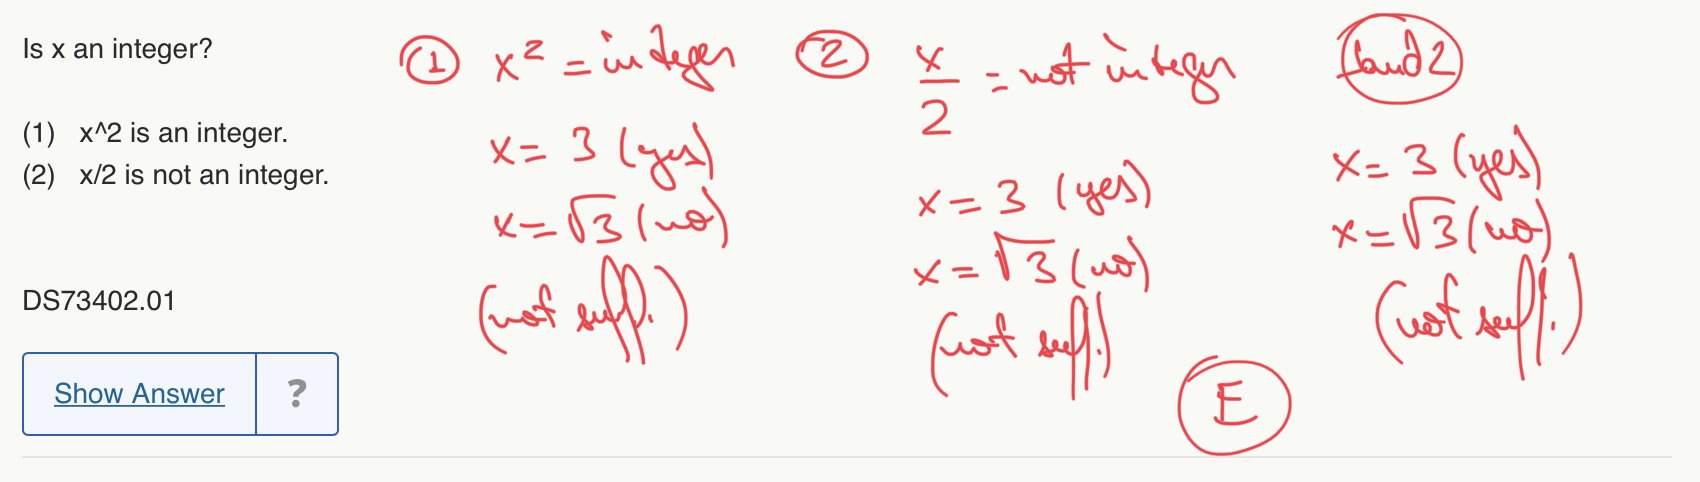 Is x an integer?
(1) x^2 is an integer.
(2) x/2 is not an integer.
DS73402.01
Show Answer
?
① x² = integer
x = 3 (yes)
x = √3 (no)
(not suff.)
② x/2 = not integer
x = 3 (yes)
x = √3 (no)
(not suff.)
1 and 2
x = 3 (yes)
x = √3 (no)
(not suff.)
E